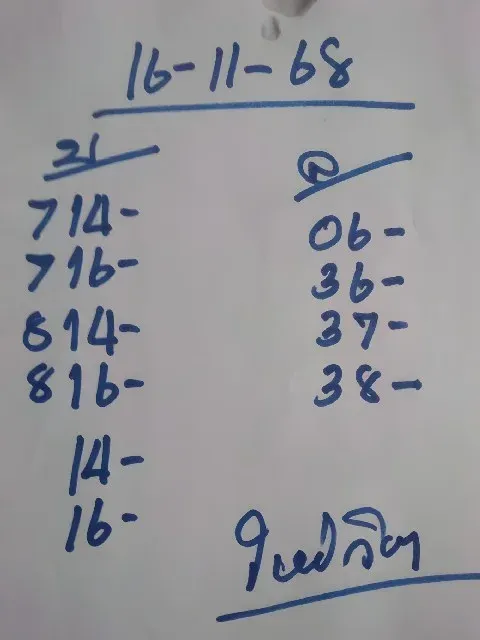 16-11-68
บ
714-
716-
814-
816-
14-
16-
ล
06-
36-
37-
38-